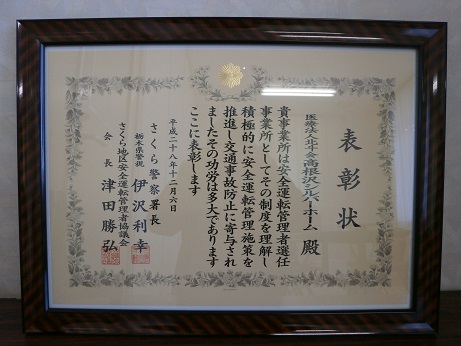 表彰状
医療法人北斗会高根沢シルバーホーム 殿
貴事業所は安全運転管理者選任
事業所としてその制度を理解し
積極的に安全運転管理施策を
推進し交通事故防止に寄与され
ましたその功労は多大であります
ここに表彰します
平成二十八年十二月六日
さくら警察署長
栃木県警視 伊沢利幸
さくら地区安全運転管理者協議会
会長 津田勝弘